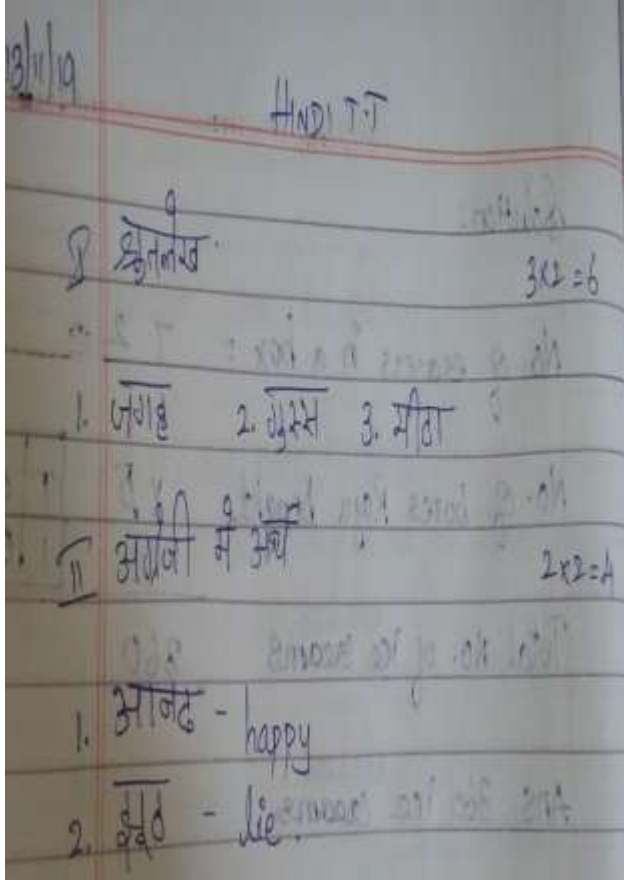 13/11/19
HINDI T.T
I श्रुतलेख 3x2=6
1. जगह 2. गुस्स 3. मीठा
II अंग्रेजी में अर्थ 2x2=4
1. आनंद - happy
2. झूठ - lie.